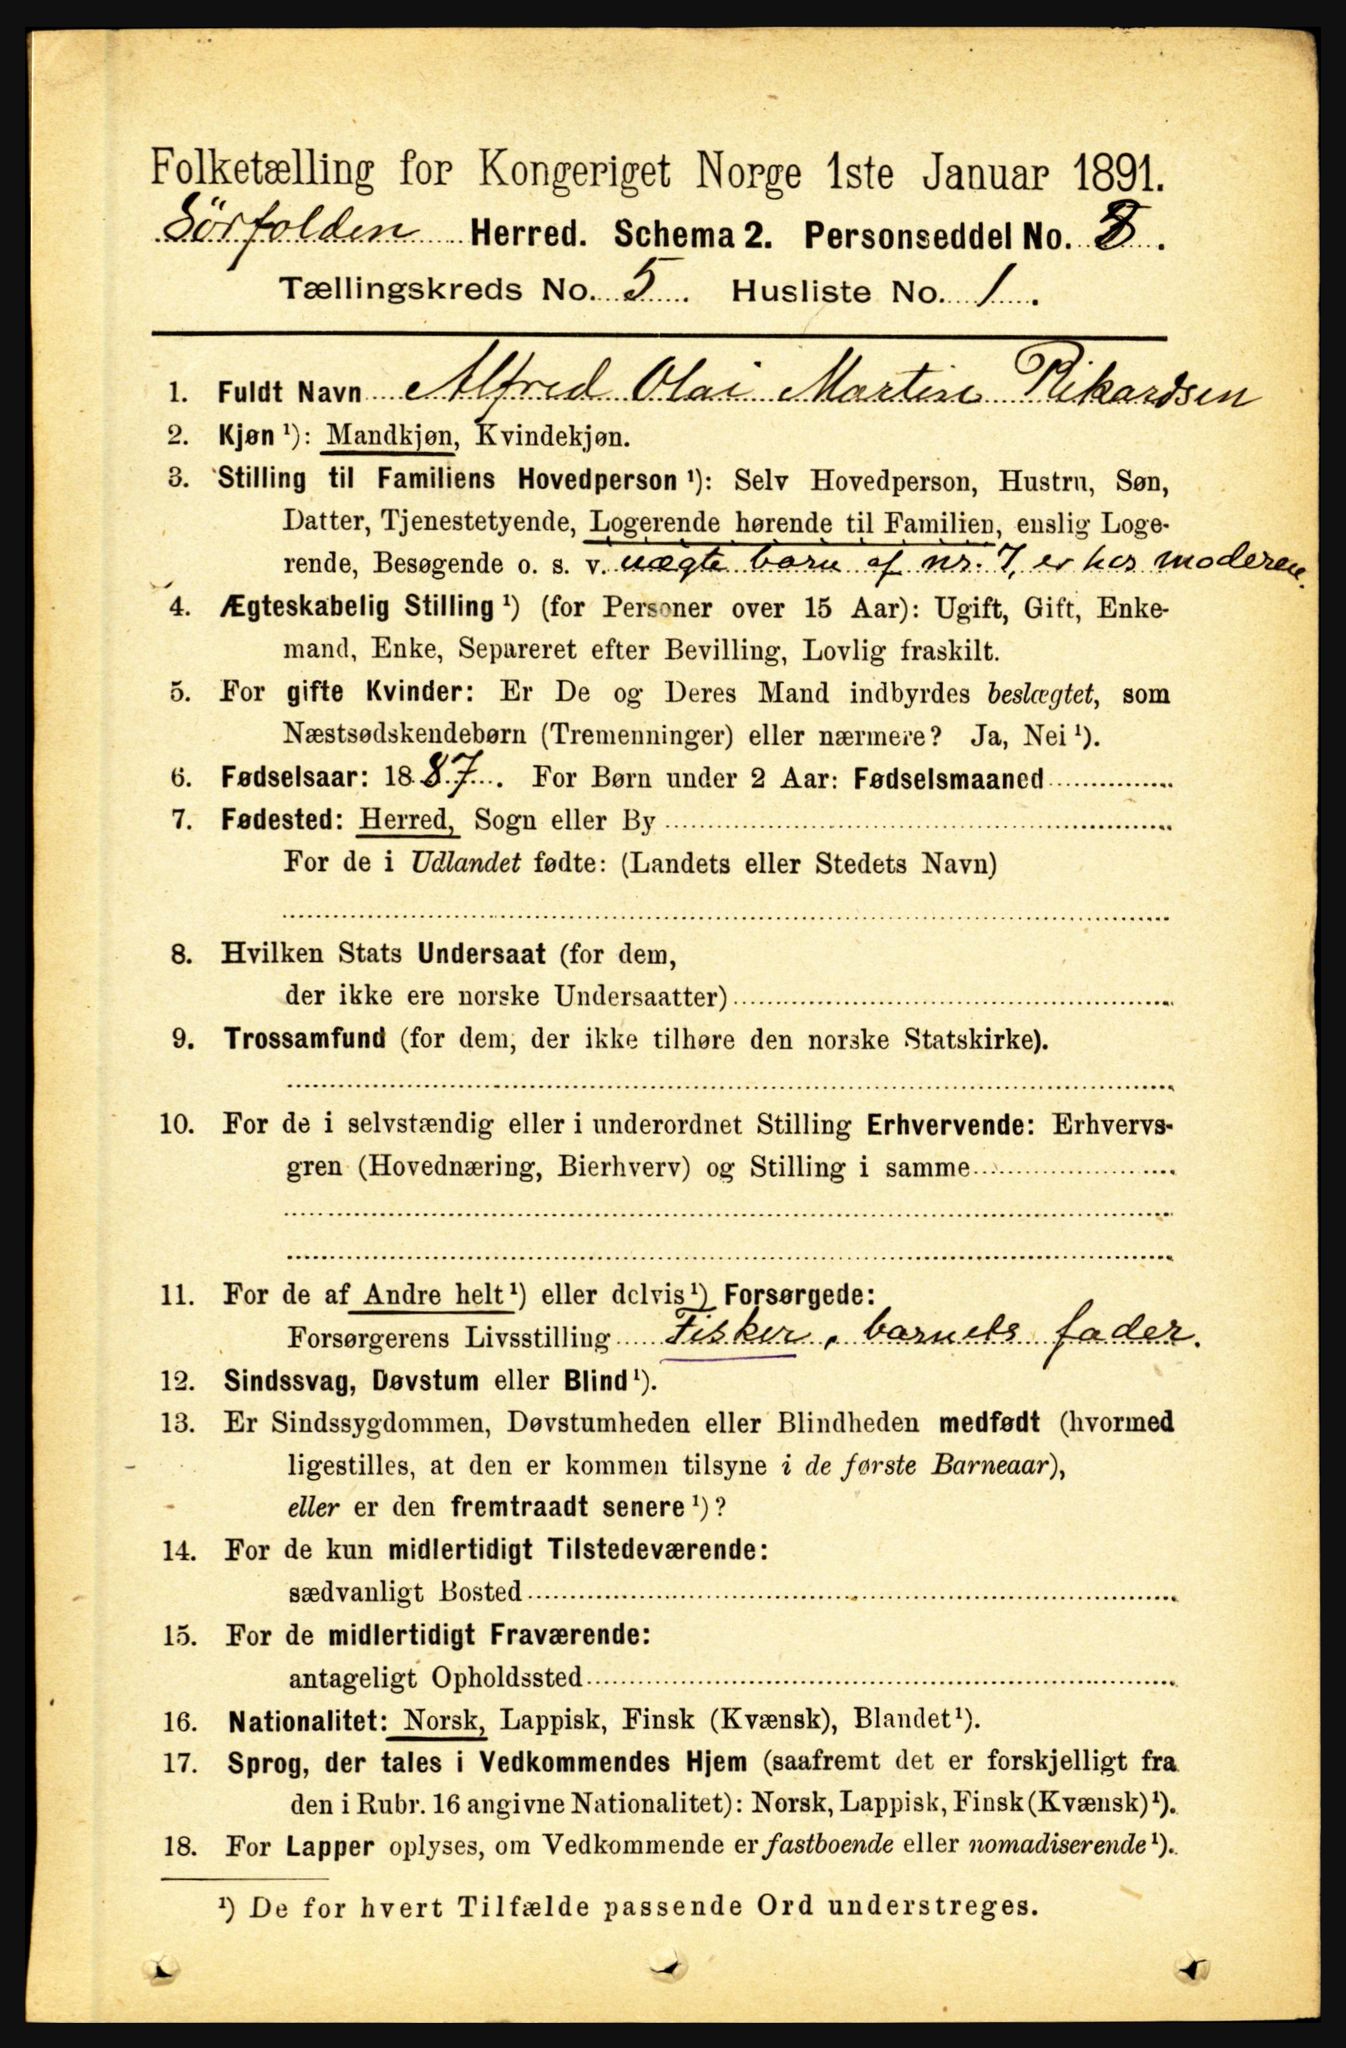 Folketælling for Kongeriget Norge 1ste Januar 1891.
Sörfolden Herred. Schema 2. Personseddel No. 8.
Tællingskreds No. 5. Husliste No. 1.
1. Fuldt Navn Alfred Olai Martin Rikardsen
2. Kjøn ¹): Mandkjøn, Kvindekjøn.
3. Stilling til Familiens Hovedperson ¹): Selv Hovedperson, Hustru, Søn,
Datter, Tjenestetyende, Logerende hørende til Familien, enslig Loge-
rende, Besøgende o. s. v. uægte barn af nr. 7, er hos moderen.
4. Ægteskabelig Stilling ¹) (for Personer over 15 Aar): Ugift, Gift, Enke-
mand, Enke, Separeret efter Bevilling, Lovlig fraskilt.
5. For gifte Kvinder: Er De og Deres Mand indbyrdes beslægtet, som
Næstsødskendebørn (Tremenninger) eller nærmere? Ja, Nei ¹).
6. Fødselsaar: 1887. For Børn under 2 Aar: Fødselsmaaned
7. Fødested: Herred, Sogn eller By
For de i Udlandet fødte: (Landets eller Stedets Navn)
8. Hvilken Stats Undersaat (for dem,
der ikke ere norske Undersaatter)
9. Trossamfund (for dem, der ikke tilhøre den norske Statskirke).
10. For de i selvstændig eller i underordnet Stilling Erhvervende: Erhvervs-
gren (Hovednæring, Bierhverv) og Stilling i samme
11. For de af Andre helt ¹) eller delvis ¹) Forsørgede:
Forsørgerens Livsstilling Fisker, barnets fader.
12. Sindssvag, Døvstum eller Blind ¹).
13. Er Sindssygdommen, Døvstumheden eller Blindheden medfødt (hvormed
ligestilles, at den er kommen tilsyne i de første Barneaar),
eller er den fremtraadt senere ¹)?
14. For de kun midlertidigt Tilstedeværende:
sædvanligt Bosted
15. For de midlertidigt Fraværende:
antageligt Opholdssted
16. Nationalitet: Norsk, Lappisk, Finsk (Kvænsk), Blandet ¹).
17. Sprog, der tales i Vedkommendes Hjem (saafremt det er forskjelligt fra
den i Rubr. 16 angivne Nationalitet): Norsk, Lappisk, Finsk (Kvænsk) ¹).
18. For Lapper oplyses, om Vedkommende er fastboende eller nomadiserende ¹).
¹) De for hvert Tilfælde passende Ord understreges.